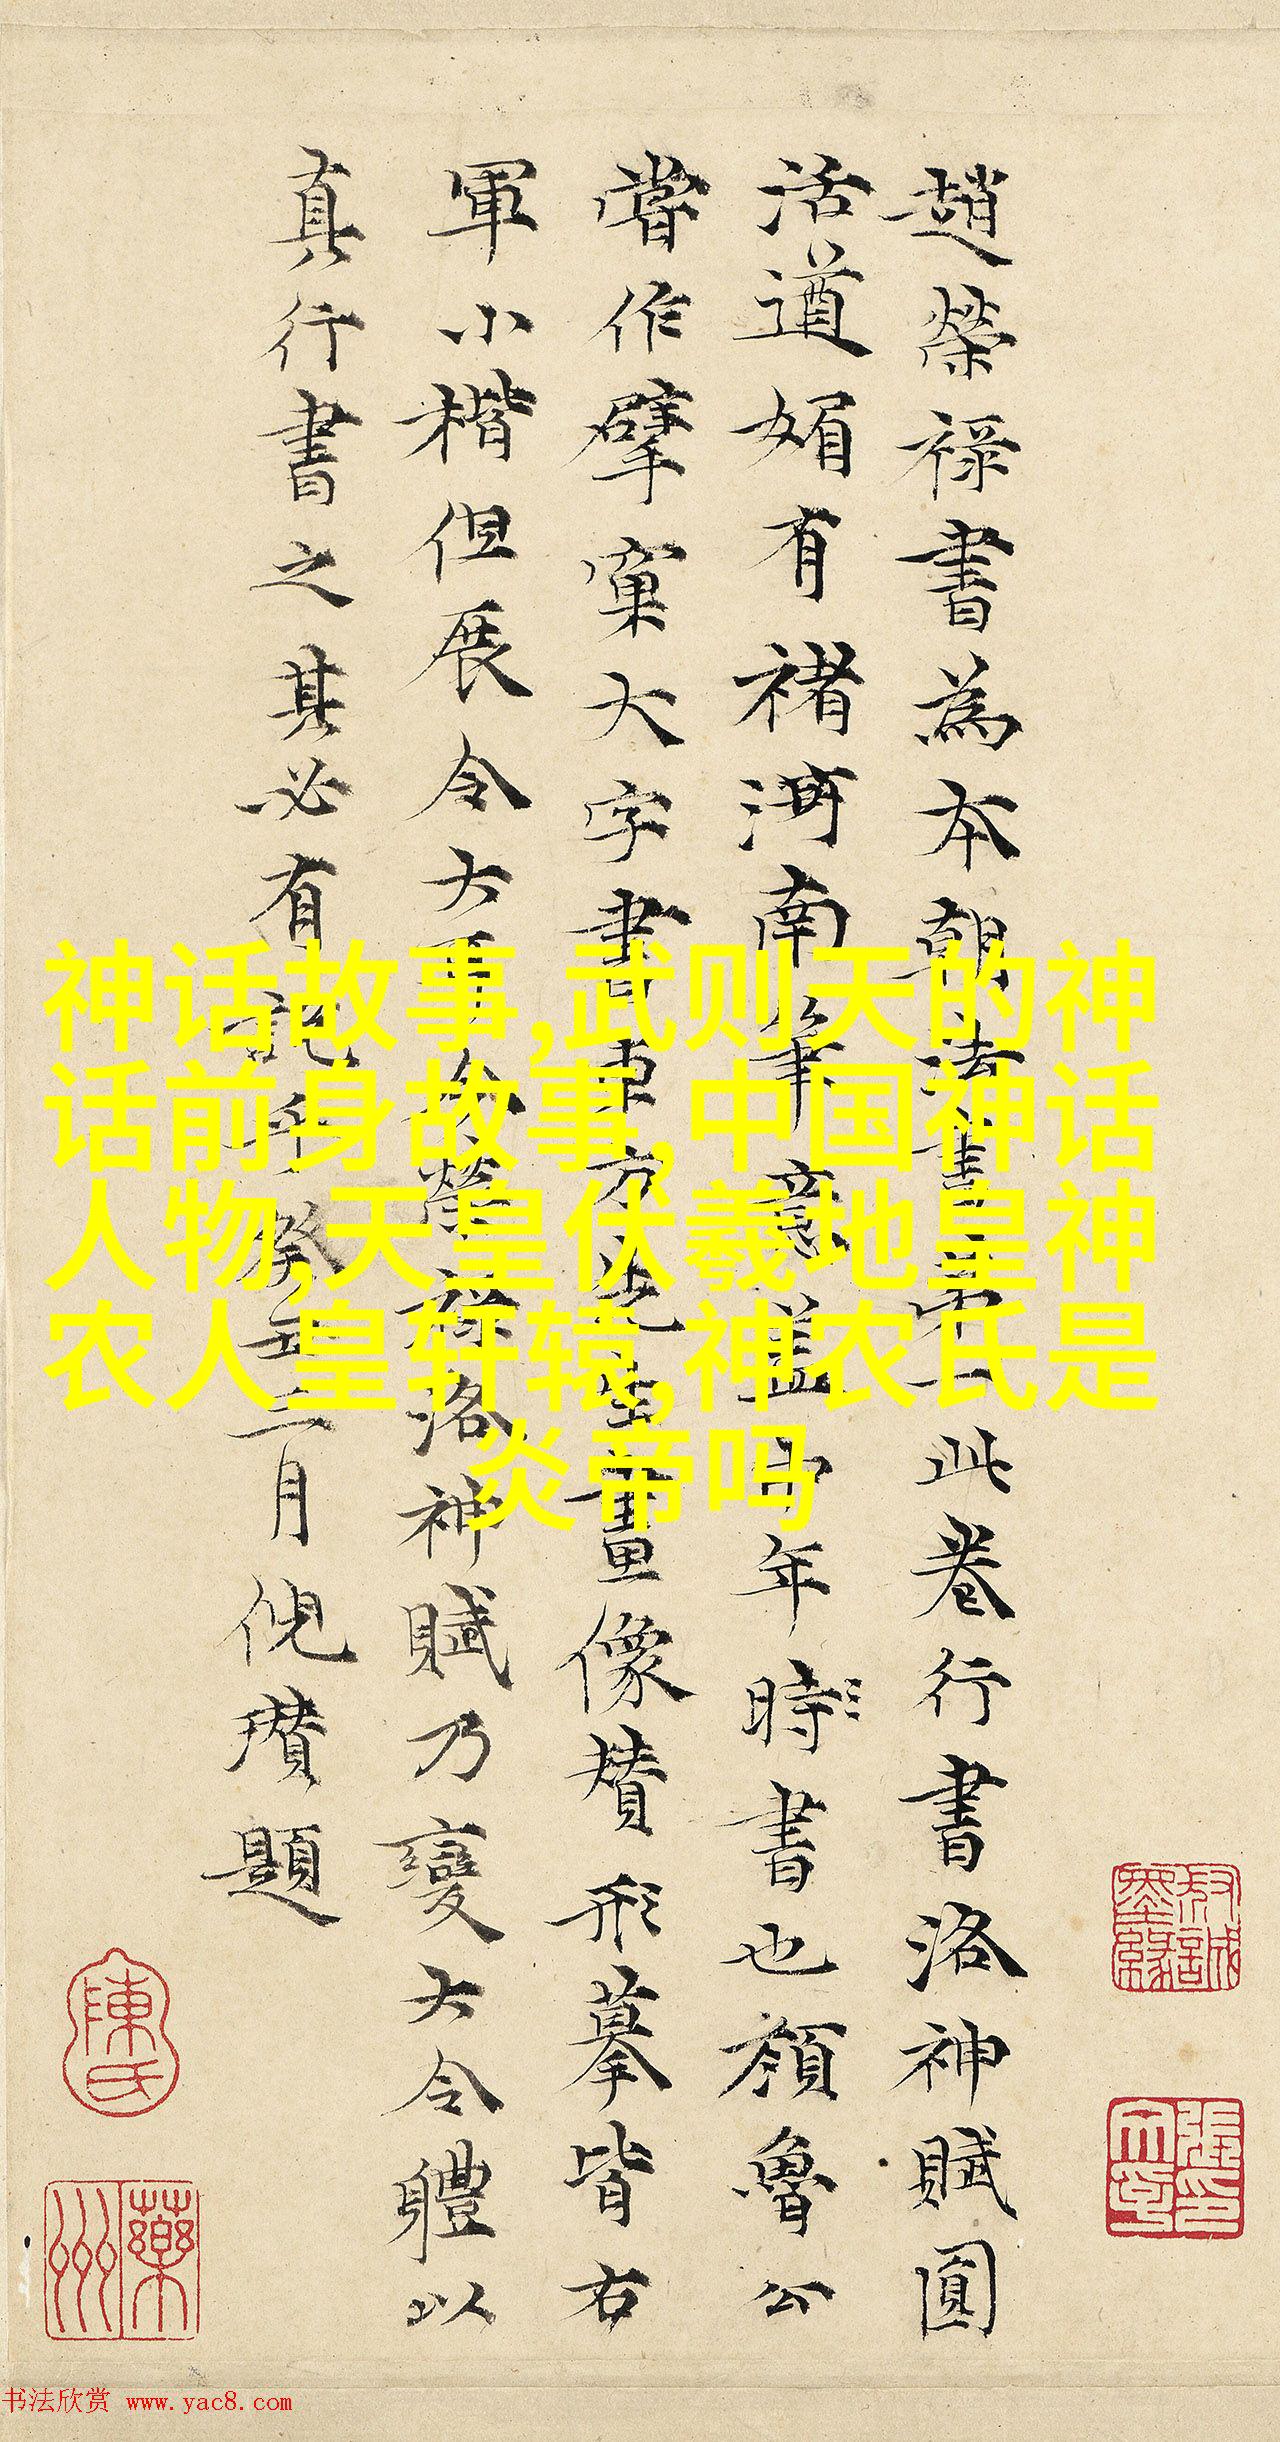 趙榮祿書為本朝法書第一此卷行書洛神賦圓
活遒媚有褚河南筆意蓋中年時書也顏魯公
嘗作擘窠大字書東方先生畫像贊形摹皆右
軍小楷但展令大耳今榮祿洛神賦乃變大令體以
真行書之其必有說乎癸丑三月倪瓚題
神话故事,武则天的神
话前身故事,中国神话
人物,天皇伏羲地皇神
农人皇轩辕,神农氏是
炎帝吗
陳氏
藥洲
书法欣赏 www.yac8.com